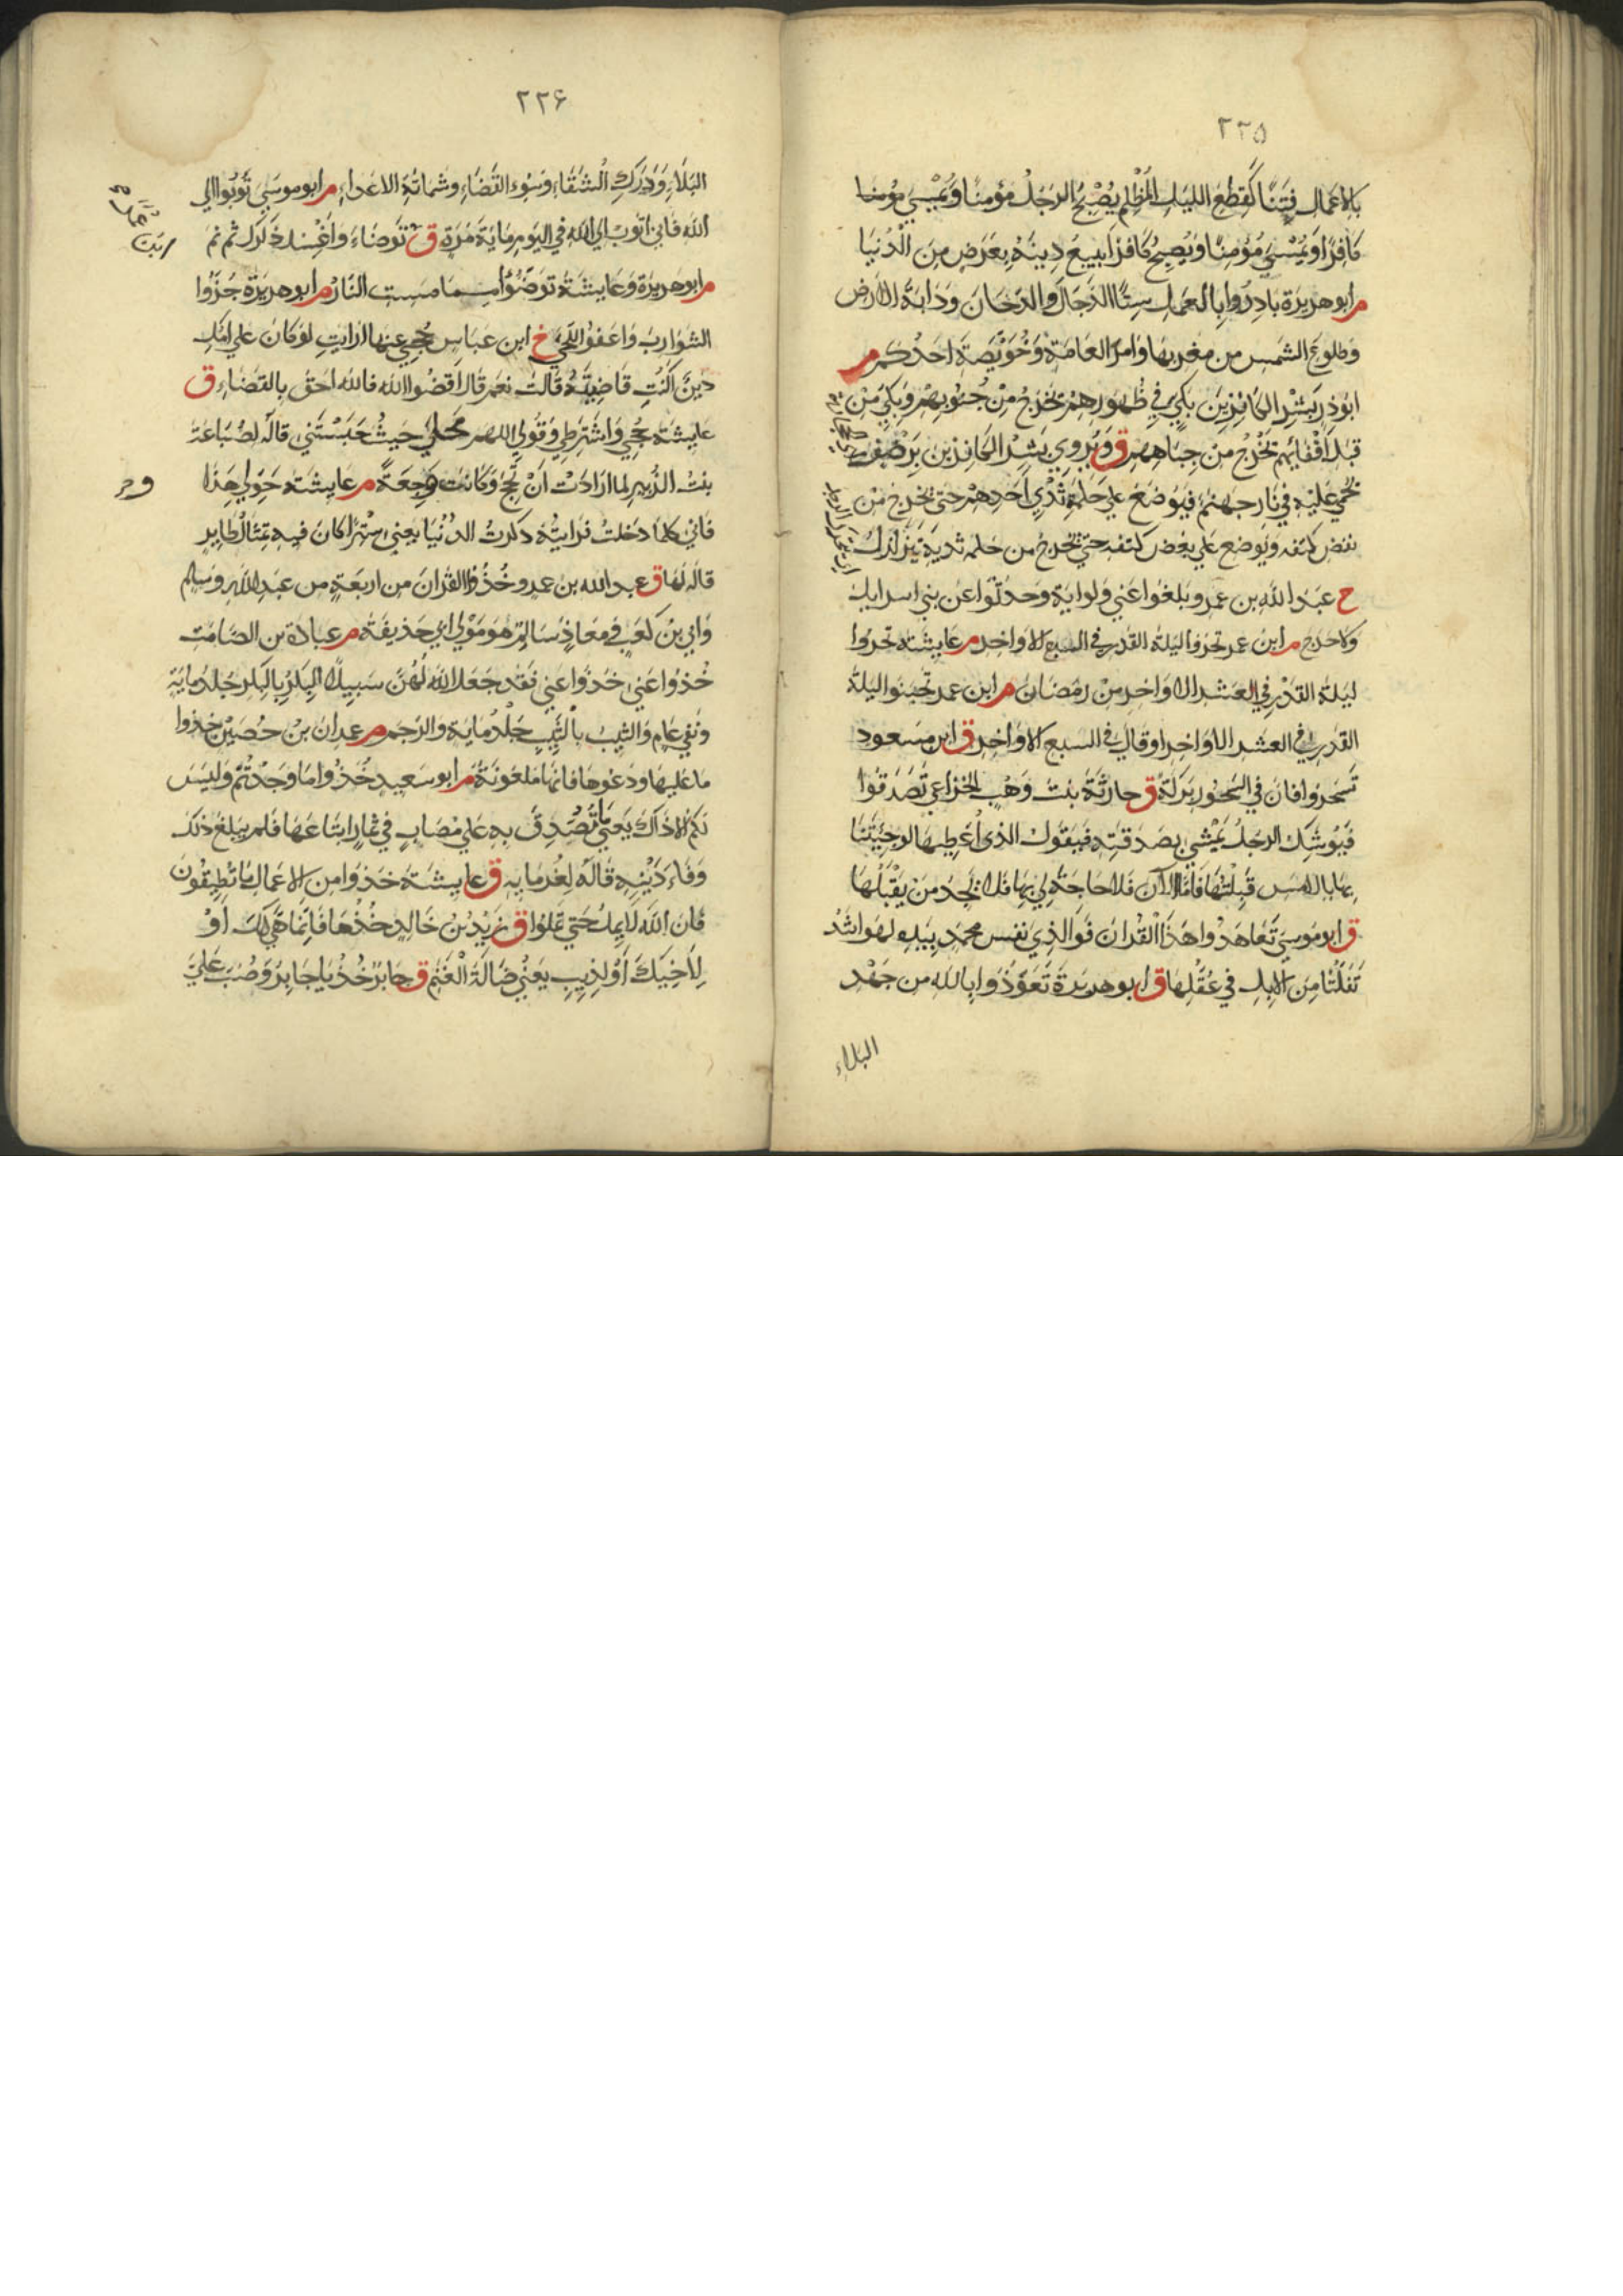 ٢٢٥
بالاعمال فتنا كقطع الليل المظلم يصبح الرجل مؤمنا ويمسي
كافرا ويمسي مؤمنا ويصبح كافرا يبيع دينه بعرض من الدنيا
م ابو هريرة بادروا بالعمل ستا الدجال والدخان ودابة الارض
وطلوع الشمس من مغربها وامر العامة وخويصة احدكم م
ابو ذر بشر الكانزين بكي في ظهورهم تخرج من جنوبهم وبكي من
قبل اقفايهم تخرج من جباههم ق ويروي بشر الكانزين برضف
يحمي عليه في نار جهنم فيوضع علي حلمة ثدي احدهم حتي تخرج من
نغض كتفه ويوضع علي نغض كتفه حتي تخرج من حلمه ثديه يتزلزل
خ عبد الله بن عمرو بلغوا عني ولو اية وحدثوا عن بني اسرايل
ولا حرج م ابن عمر تحروا ليلة القدر في السبع الاواخر م عايشة تحروا
ليلة القدر في العشر الاواخر من رمضان م ابن عمر تحينوا ليلة
القدر في العشر الاواخر او قال في السبع الاواخر ق ابن مسعود
تسحروا فان في السحور بركة ق حارثة بنت وهب الخزاعي تصدقوا
فيوشك الرجل يمشي بصدقته فيقول الذي اعطيها لو جيتنا
بها بالامس قبلتها فاما الان فلا حاجة لي بها فلا يجد من يقبلها
ق ابو موسي تعاهدوا هذا القران فوالذي نفس محمد بيده لهو اشد
تفلتا من الابل في عقلها ق ابو هريرة تعوذوا بالله من جهد
البلاء
٢٢۶
البلاء ودرك الشقاء وسوء القضاء وشماتة الاعداء م ابو موسي توبوا الي
الله فاني اتوب الي الله في اليوم ماية مرة ق توضاء واغسل ذكرك ثم نم
م ابو هريرة وعايشة توضئوا مما مست النار م ابو هريرة جزوا
الشوارب واعفوا اللحي خ ابن عباس حجي عنها ارايت لو كان علي امك
دين اكنت قاضيته قالت نعم قال اقضوا الله فالله احق بالقضاء ق
عايشة حجي واشترطي وقولي اللهم محلي حيث حبستني قاله لضباعة
بنت الزبير لما ارادت ان تحج وكانت وجعة م عايشة حولي هذا
فاني كلما دخلت فرايته ذكرت الدنيا يعني سترا كان فيه تمثال طاير
قاله لها ق عبد الله بن عمرو خذوا القران من اربعة من عبد الله وسالم
وابي بن كعب ومعاذ سالم هو مولي ابي حذيفة م عبادة بن الصامت
خذوا عني خذوا عني فقد جعل الله لهن سبيلا البكر بالبكر جلد ماية
ونفي عام والثيب بالثيب جلد ماية والرجم م عمران بن حصين خذوا
ما عليها ودعوها فانها ملعونة م ابو سعيد خذوا ما وجدتم وليس
لكم الا ذلك يعني ما تصدق به علي مصاب في ثمار ابتاعها فلم يبلغ ذلك
وفاء دينه قاله لغرمايه ق عايشة خذوا من الاعمال ما تطيقون
فان الله لا يمل حتي تملوا ق زيد بن خالد خذها فانما هي لك او
لاخيك او لذيب يعني ضالة الغنم ق جابر خذ يا جابر وصب علي